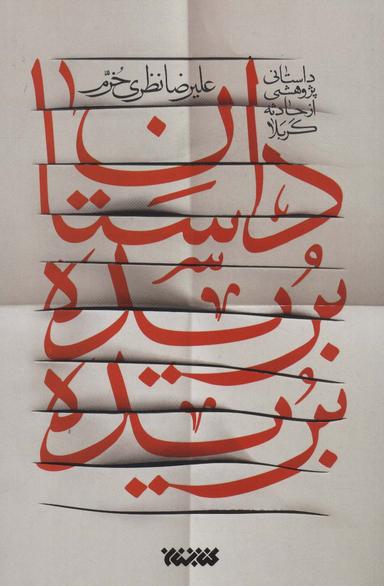 داستانی
پژوهشی
از حادثه
کربلا
علیرضا نظری خُرّم
داستان
سر
بُریده
بُریده
کتابستان